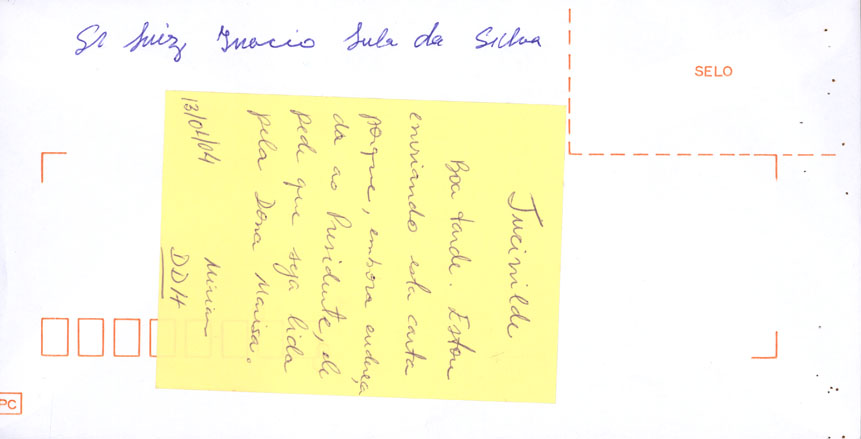 Sr Luiz Inacio Lula da Silva
SELO
Jucinilde
Boa tarde. Estou
enviando esta carta
porque, embora endereça
da ao Presidente, ele
pede que seja lida
pela Dona Marisa.
13/04/04 Mirian
DDH
PC